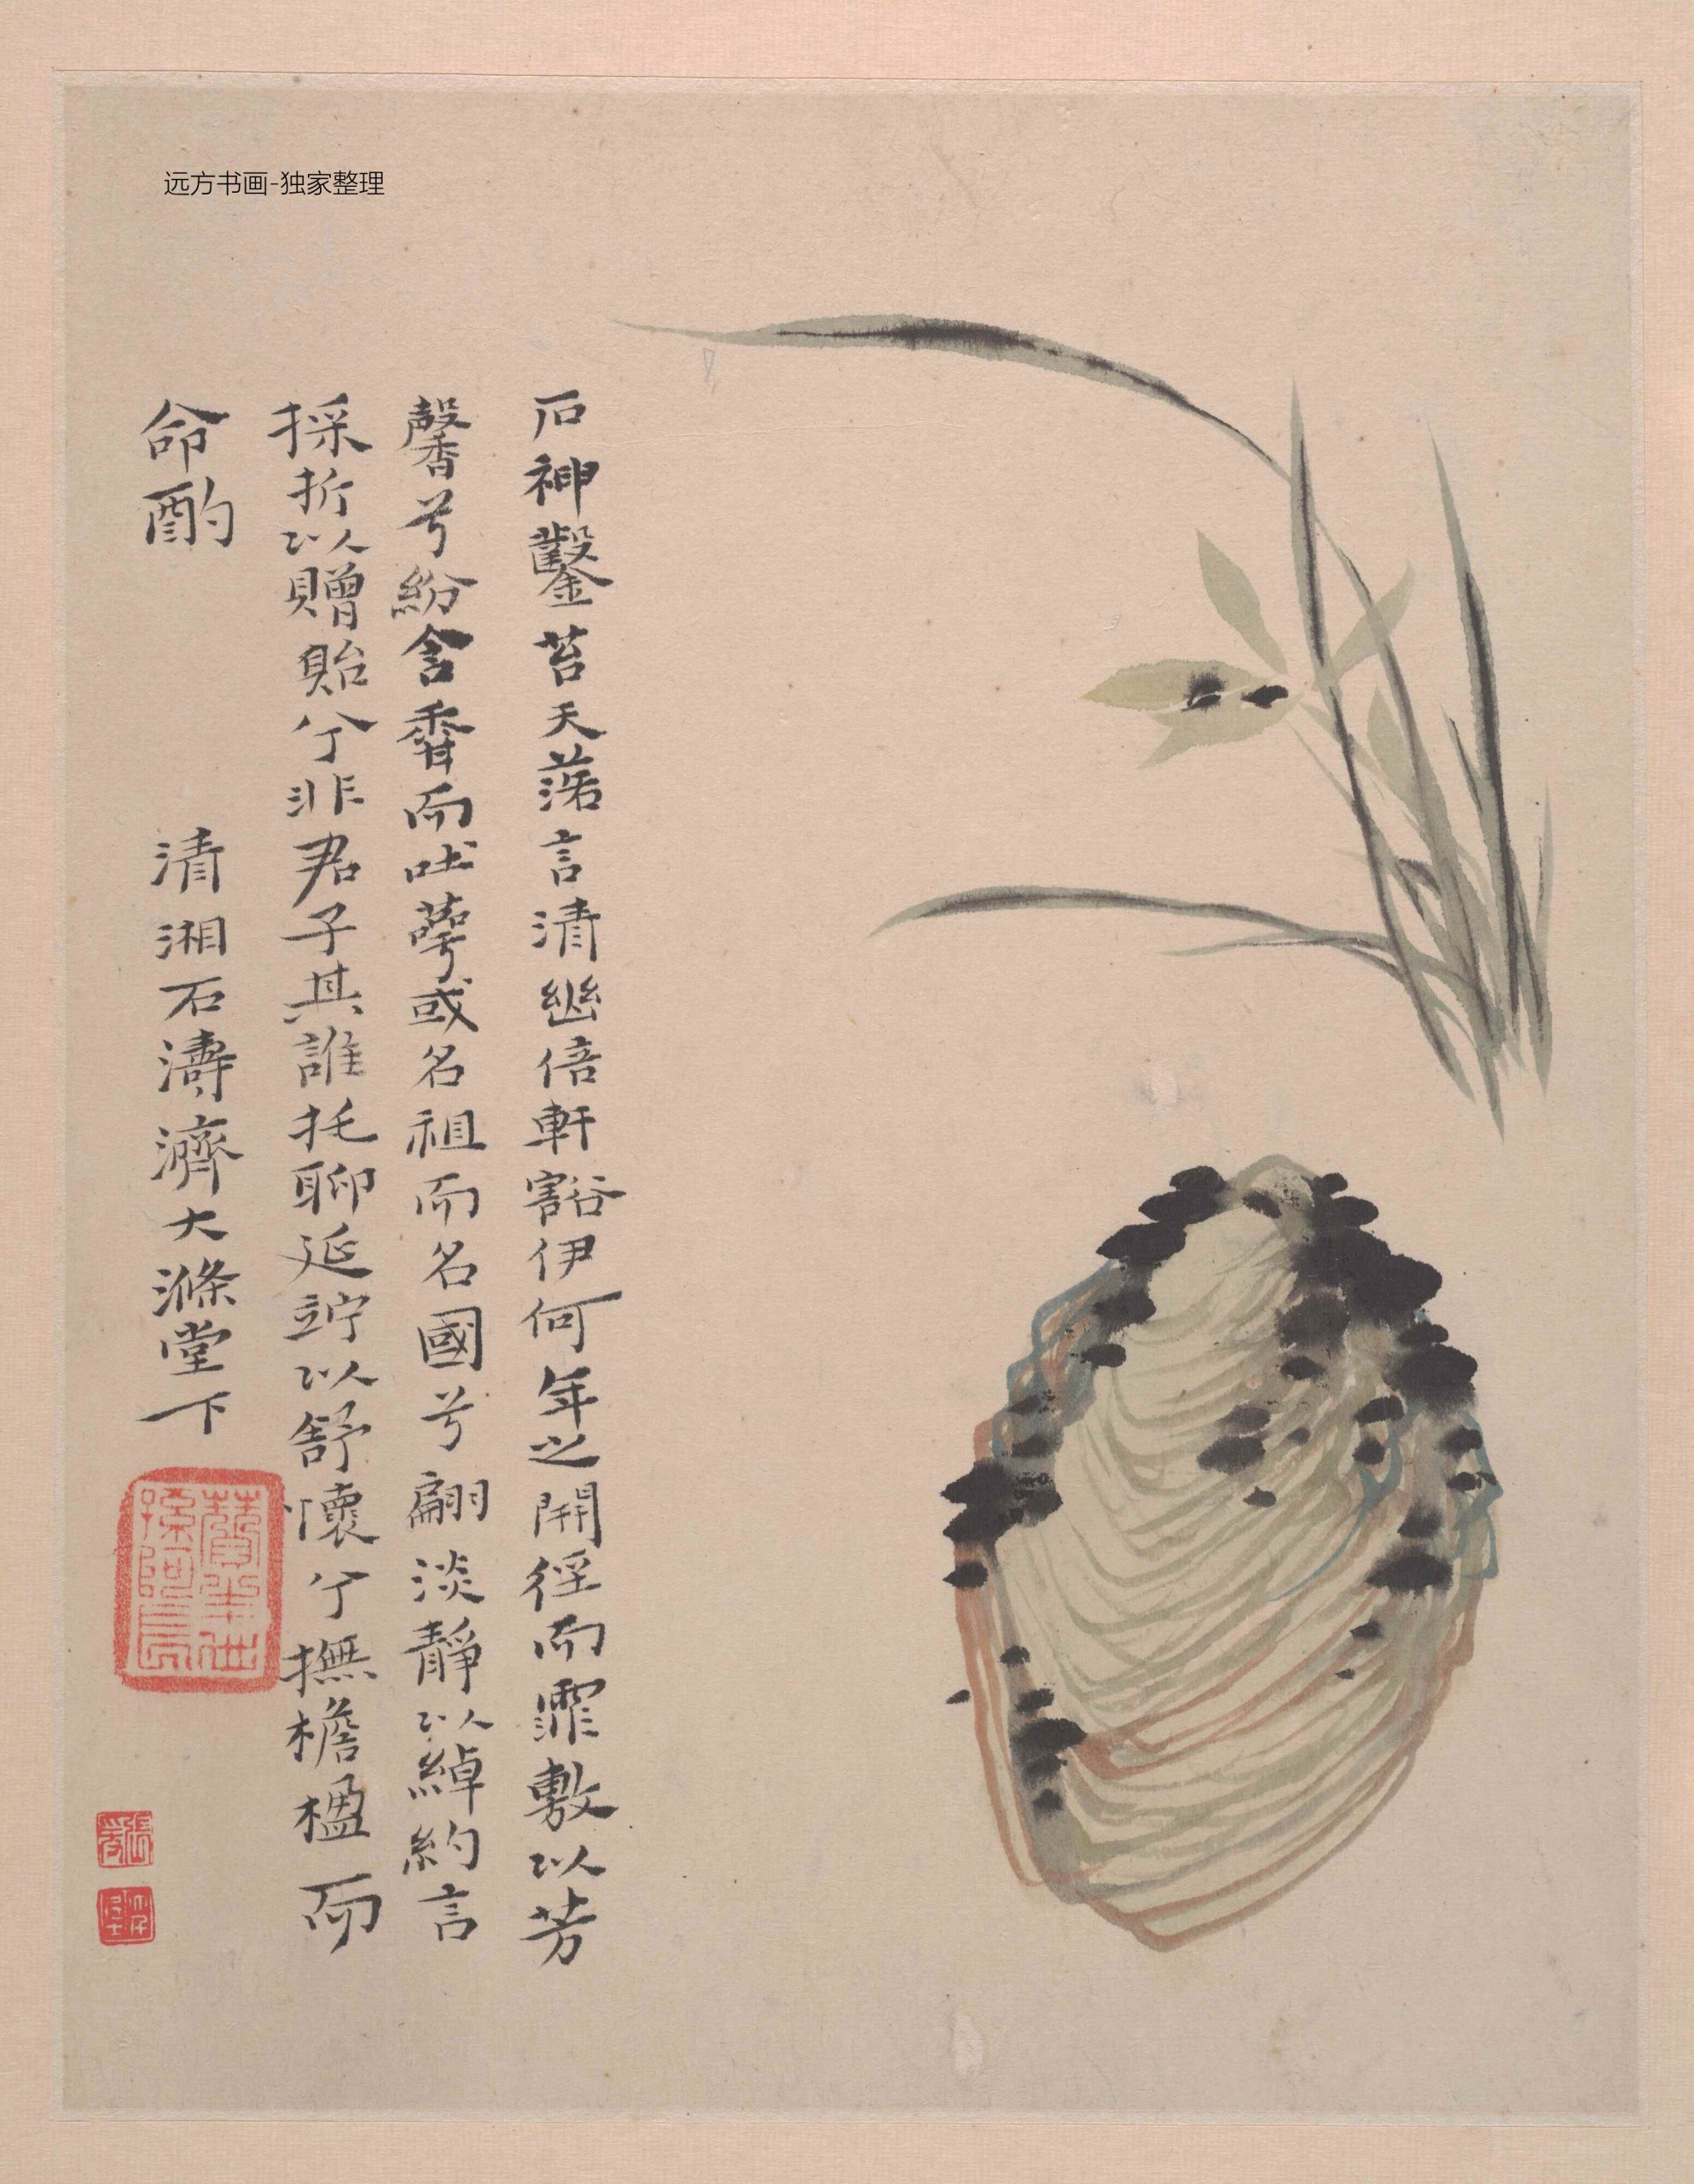 远方书画-独家整理
石神鑿苔天落言清幽倍軒豁伊何年之開徑而霏敷以芳
馨兮紛含香而吐萼或名祖而名國兮翩淡靜以綽約言
採折以贈貽兮非君子其誰托聊延竚以舒懷兮撫檐楹而
命酌
清湘石濤濟大滌堂下
贊之十世孫阿長